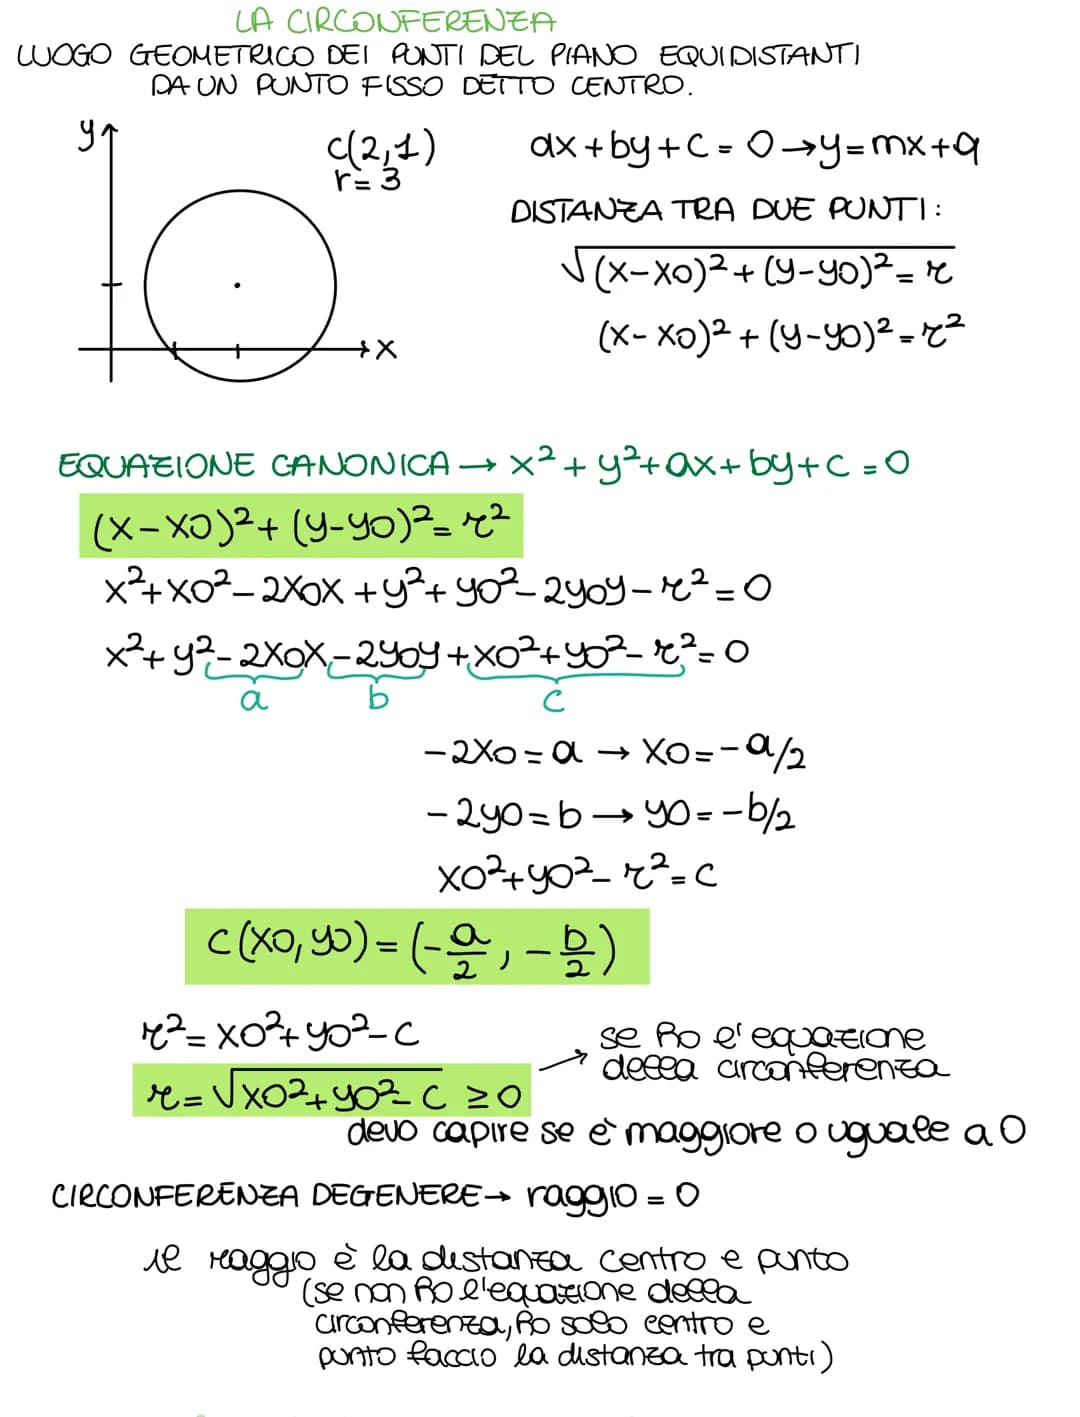 LA CIRCONFERENZA
LUOGO GEOMETRICO DEI PUNTI DEL PIANO EQUIDISTANTI
DA UN PUNTO FISSO DETTO CENTRO.
y
C(2,1)
r=3
x
ax+by+c=0→y=mx+q
DISTANZA TRA DUE PUNTI:
√(x-x0)²+(y-y0)²=r
(x-x0)²+(y-y0)²=r²
EQUAZIONE CANONICA→x²+y²+ax+by+c=0
(x-x0)²+(y-y0)²=r²
x²+x0²-2x0x+y²+y0²-2y0y-r²=0
x²+y²-2x0x-2y0y+x0²+y0²-r²=0
a b c
-2x0=a→x0=-a/2
-2y0=b→y0=-b/2
x0²+y0²-r²=c
C(x0,y0)=(-a/2,-b/2)
r²=x0²+y0²-c
r=√x0²+y0²-c ≥0
→ se ho l'equazione
della circonferenza
devo capire se è maggiore o uguale a 0
CIRCONFERENZA DEGENERE→ raggio=0
il raggio è la distanza centro e punto
(se non ho l'equazione della
circonferenza, ho solo centro e
punto faccio la distanza tra punti)